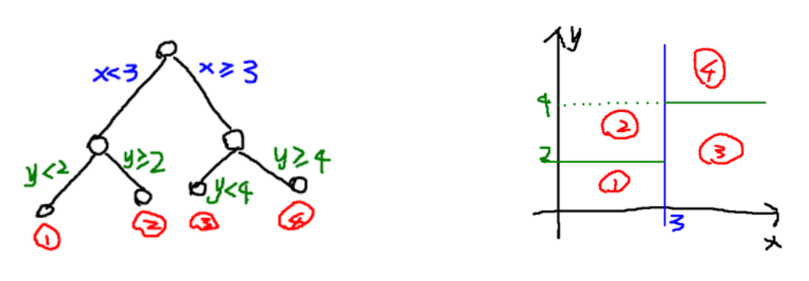 x<3 x≥3
y<2 y≥2 y<4 y≥4
① ② ③ ④
y
④
4
②
③
2
①
3
x